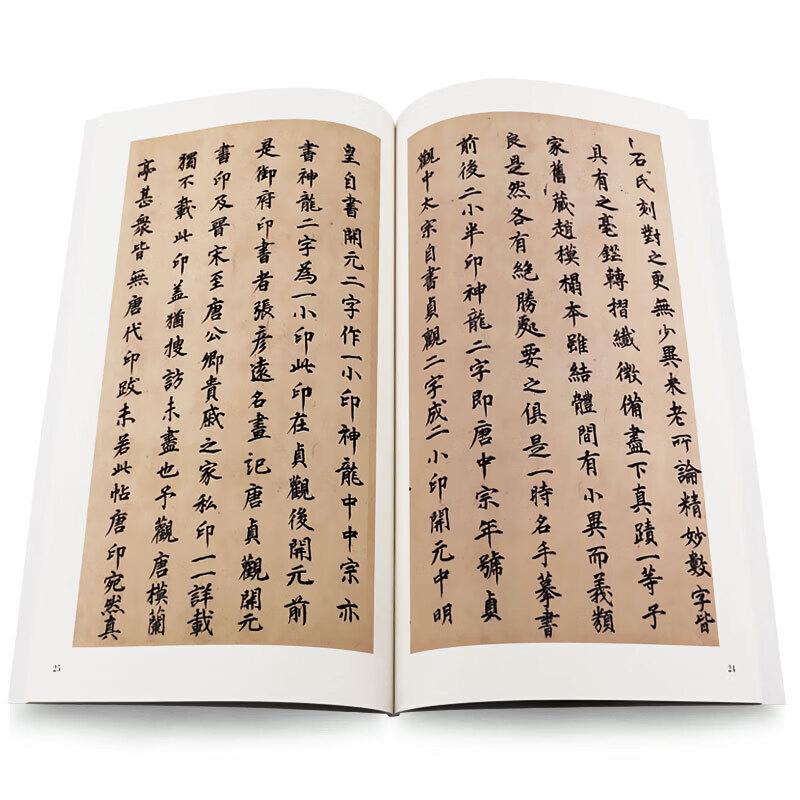 石氏刻對之更無少異米老所論精妙數字皆
具有之毫鋩轉摺纖微備盡下真蹟一等予
家舊藏趙模搨本雖結體間有小異而義類
良是然各有絶勝處要之俱是一時名手摹書
前後二小半印神龍二字即唐中宗年號貞
觀中太宗自書貞觀二字成二小印開元中明
24
皇自書開元二字作一小印神龍中中宗亦
書神龍二字為一小印此印在貞觀後開元前
是御府印書者張彥遠名畫記唐貞觀開元
書印及晋宋至唐公卿貴戚之家私印一一詳載
獨不載此印蓋猶搜訪未盡也予觀唐模蘭
亭甚衆皆無唐代印跋未若此帖唐印宛然真
25